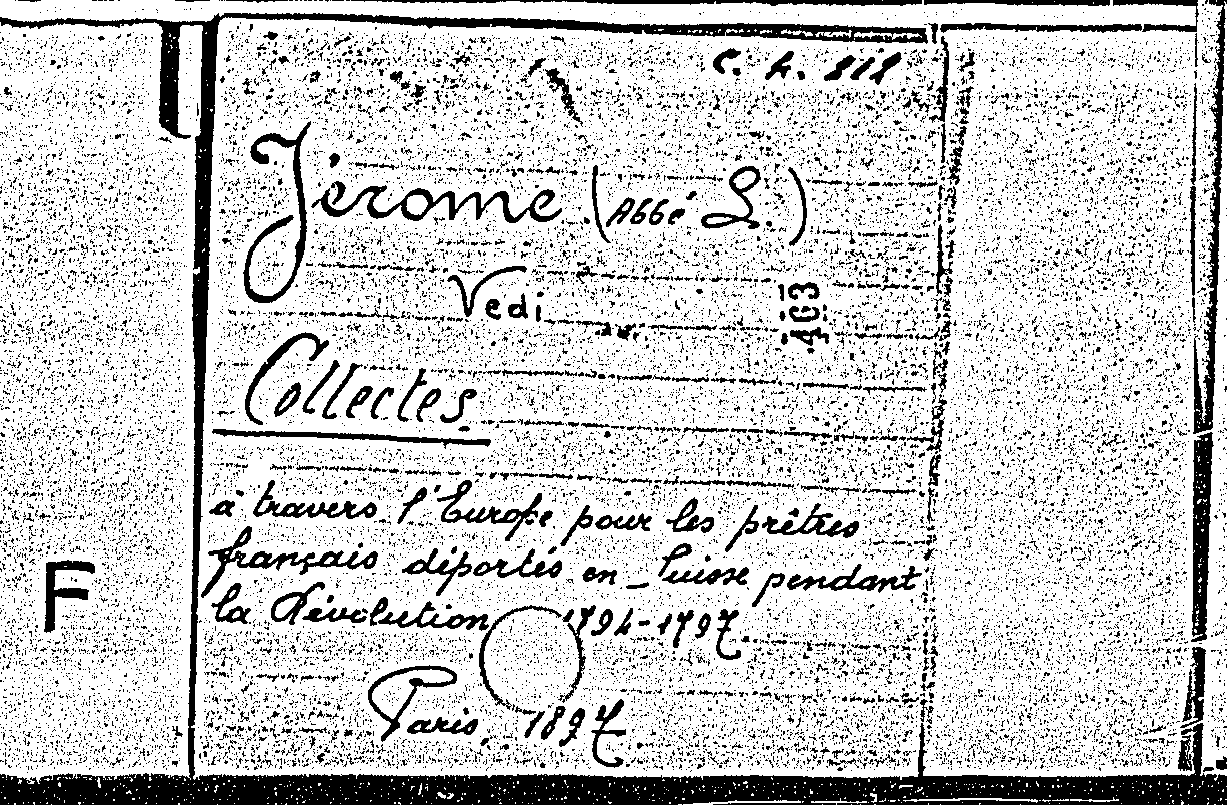 C. L. 818
Jérome (Abbé L.)
Vedi
403
Collectes
à travers l'Europe pour les prêtres
français déportés en Suisse pendant
la Révolution 1794-1797.
Paris, 1897
F